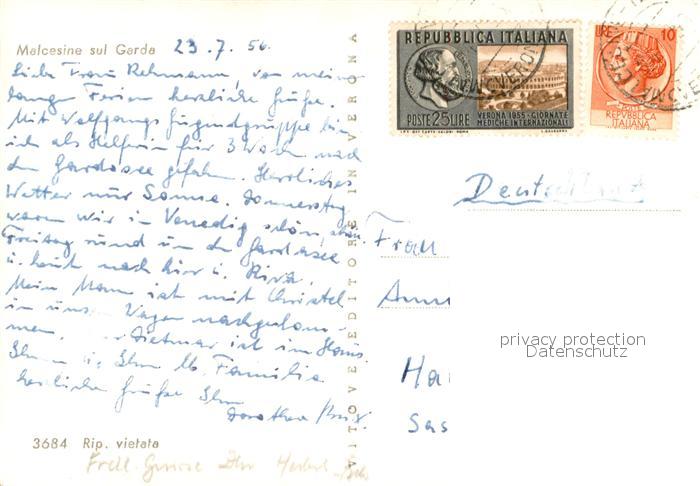 Malcesine sul Garda 23.7.56
Liebe Frau Rehmann, von meinen
langen Ferien herzliche Grüße.
Mit Wolfgangs Jugendgruppe bin
ich als Helferin für 3 Wochen nach
dem Gardasee gefahren. Herrliches
Wetter nur Sonne. Donnerstag
waren wir in Venedig schön, aber
Freitag rund um den Gardasee
u. heute nach hier u. Riva.
Mein Mann ist mit Christel
in uns. Wagen nachgekom-
men. Dietmar ist im Haus.
Ihnen u. Ihrer lb. Familie
herzliche Grüße Ihre
Dorothea
3684 Rip. vietata
VITO VEDITORE IN VERONA
REPUBBLICA ITALIANA
POSTE 25 LIRE
VERONA 1955 - GIORNATE
MEDICHE INTERNAZIONALI
LIRE 10
POSTE
REPVBBLICA
ITALIANA
Deutschland
Frau
Anna
Ha
Sas
privacy protection
Datenschutz